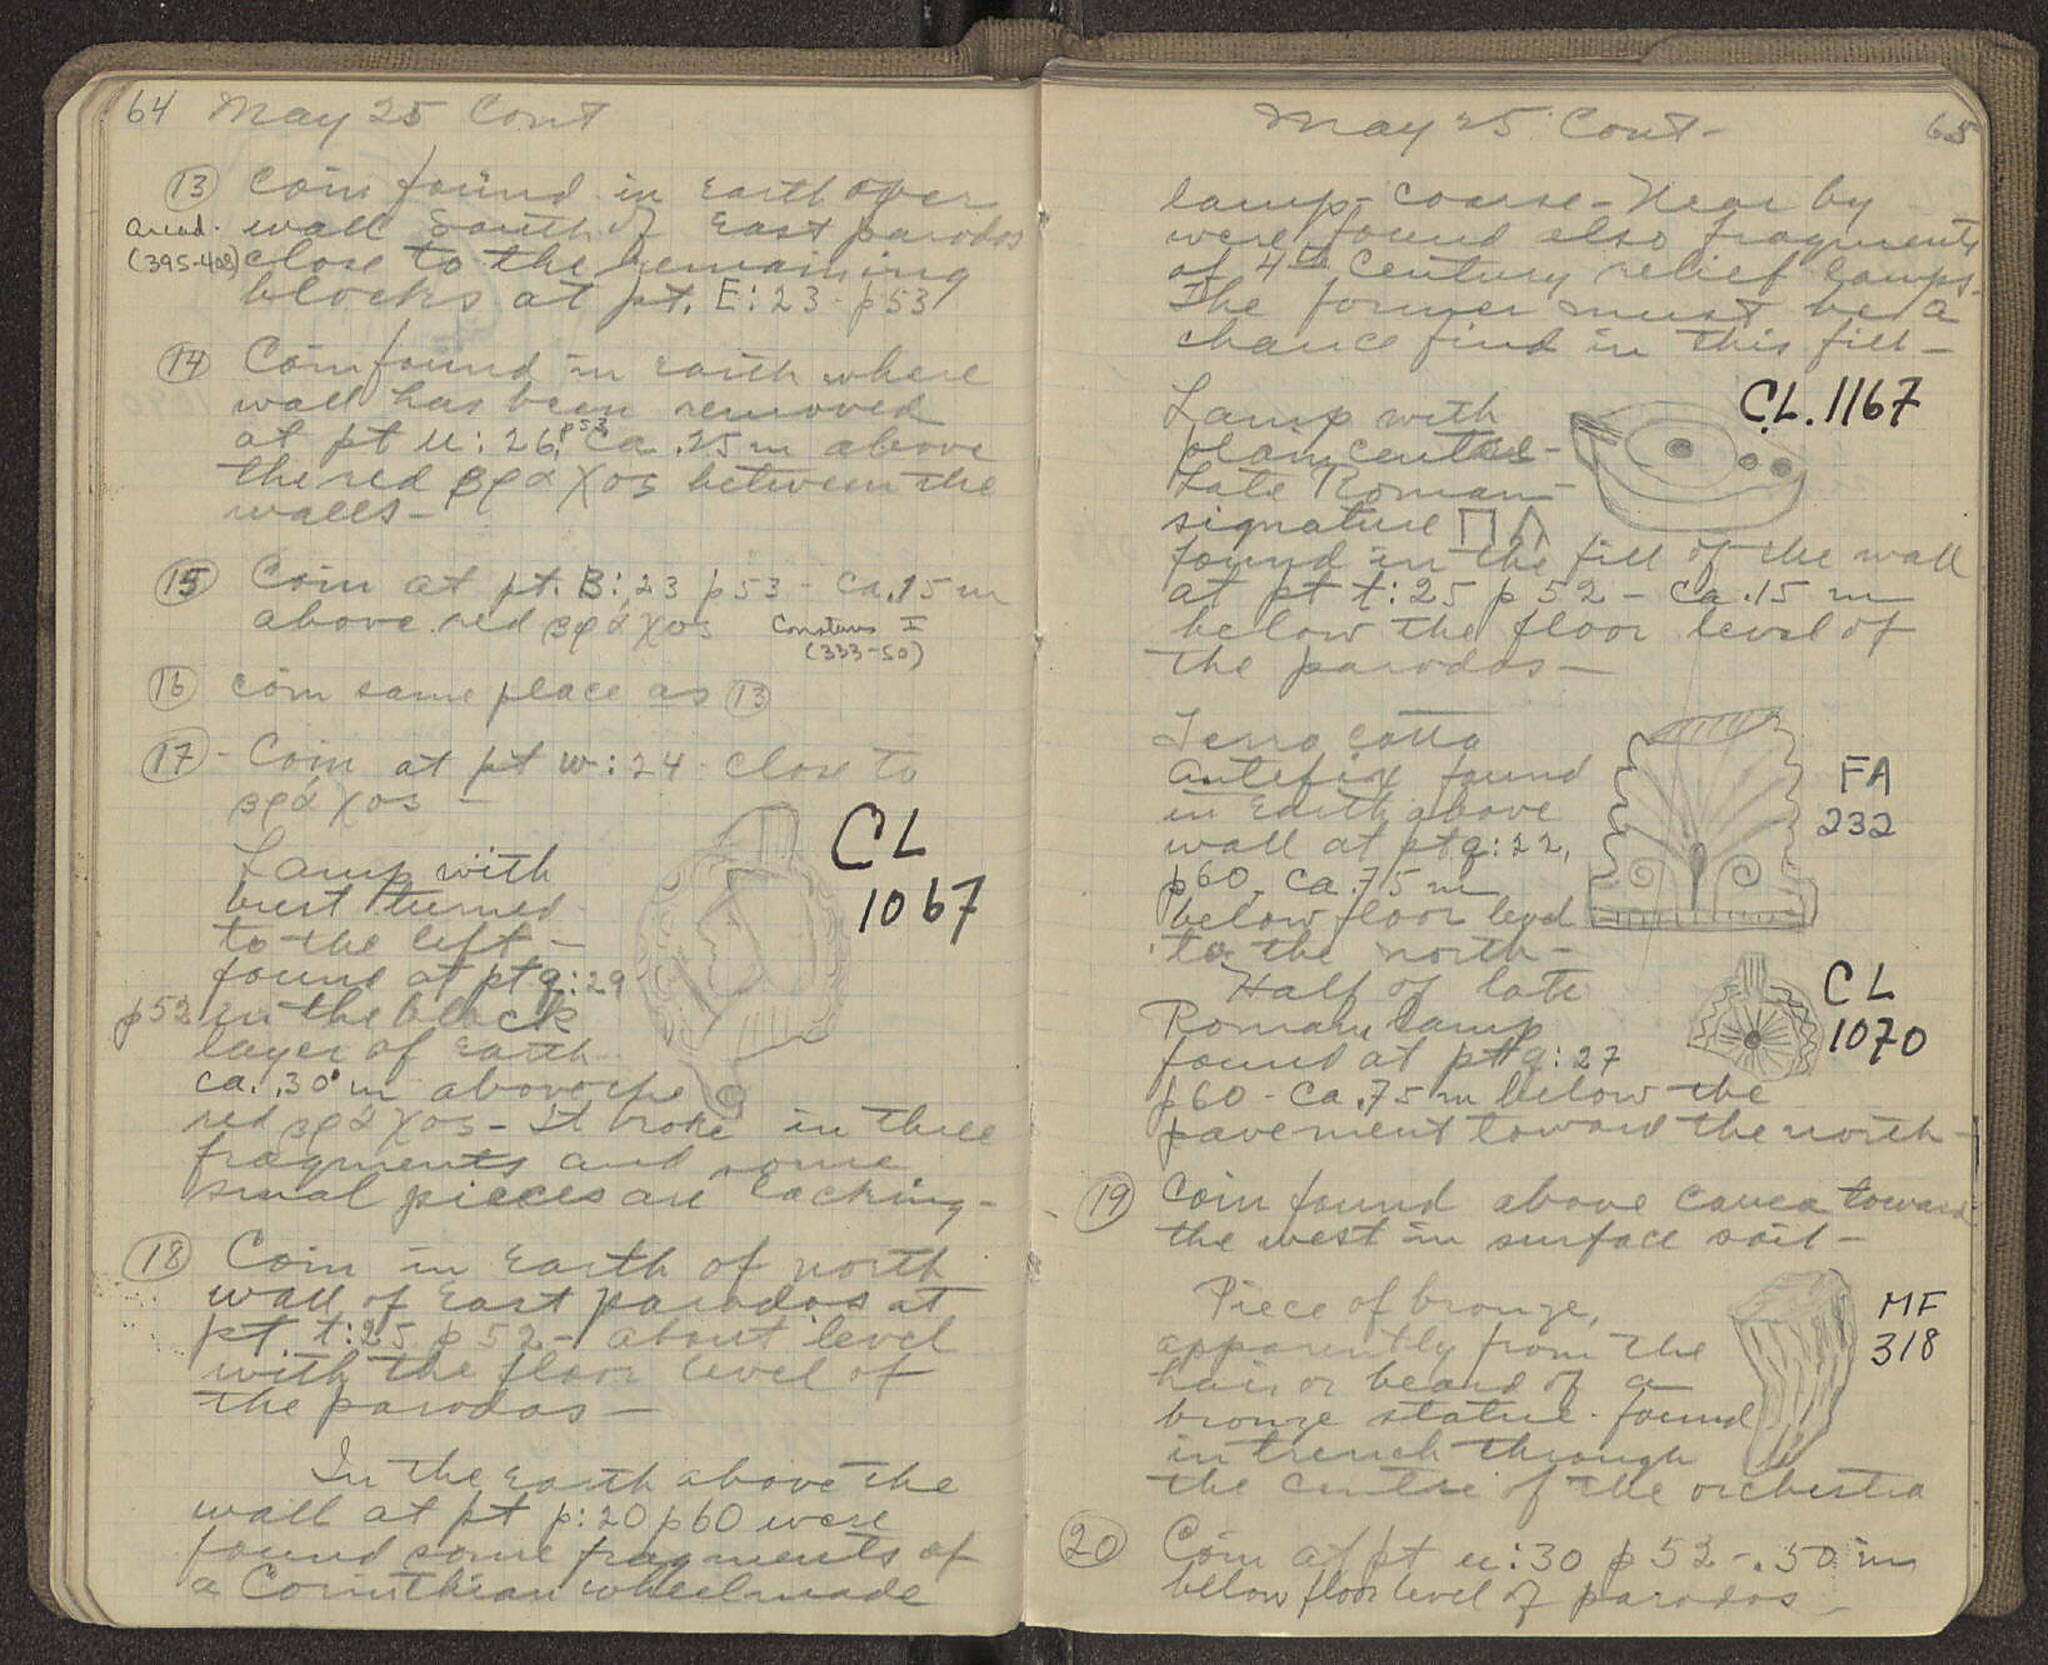 64 May 25 Cont
(13) Coin found in earth over
Arcad. wall south of East parodos
(395-408) close to the remaining
blocks at pt. E:23 - p53
(14) Coin found in earth where
wall has been removed
at pt u:26, p53, ca .25 m above
the red βράχος between the
walls -
(15) Coin at pt. B:23 p53 - ca .15 m
above red βράχος Constans I
(333-50)
(16) coin same place as (13)
(17) - Coin at pt w:24 close to
βράχος -
Lamp with
bust turned
to the left -
found at pt q:29
p52 in the black
layer of earth
ca. .30 m above the
red βράχος - It broke in three
fragments and some
small pieces are lacking -
CL
1067
(18) Coin in earth of north
wall of East parodos at
pt. t:25 p52 - about level
with the floor level of
the parodos -
In the earth above the
wall at pt p:20 p60 were
found some fragments of
a Corinthian wheelmade
May 25 Cont - 65
lamp - coarse - Near by
were found also fragments
of 4th century relief lamps.
The former must be a
chance find in this fill -
Lamp with
plain center -
Late Roman -
signature ΠΑ
found in the fill of the wall
at pt t:25 p52 - ca .15 m
below the floor level of
the parodos -
CL. 1167
Terra cotta
antefix found
in earth above
wall at pt q:22,
p60, ca .75 m
below floor level
to the north -
FA
232
Half of late
Roman lamp
found at pt q:27
p60 - ca .75 m below the
pavement toward the north -
CL
1070
(19) Coin found above cavea toward
the west in surface soil -
Piece of bronze,
apparently from the
hair or beard of a
bronze statue - found
in trench through
the centre of the orchestra
MF
318
(20) Coin at pt u:30 p52 - .50 m
below floor level of parodos -